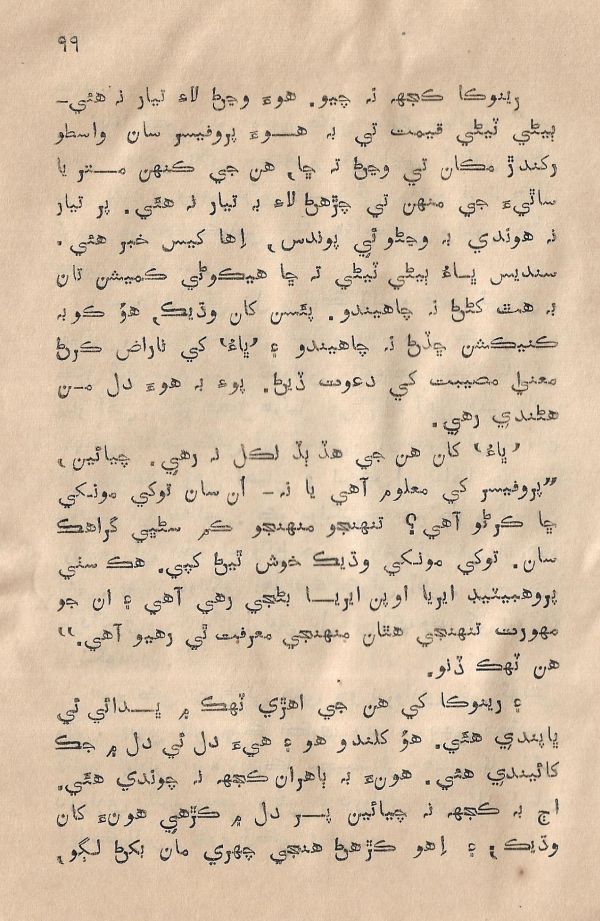 ۹۹
رينوڪا ڪجهہ نہ چيو. هوءَ وڃڻ لاءِ تيار نہ هئي-
ٻيڻي ٽيڻي قيمت تي بہ هوءَ پروفيسر سان واسطو
رکندڙ مڪان تي وڃڻ تہ ڇا, هن جي ڪنهن متر يا
ساٿيءَ جي منهن تي چڙهڻ لاءِ بہ تيار نہ هئي. پر تيار
نہ هوندي بہ وڃڻو ئي پوندس, اِها ڪيس خبر هئي.
سنديس ڀاءُ ٻيڻي ٽيڻي تہ ڇا هيڪوڻي ڪميشن تان
بہ هٿ کڻڻ نہ چاهيندو. پئسن کان وڌيڪ, هوُ ڪو بہ
ڪنيڪشن ڇڏڻ نہ چاهيندو ۽ ’ڀاءُ‘ کي ناراض ڪرڻ
معنيٰ مصيبت کي دعوت ڏيڻ. پوءِ بہ هوءَ دل ۾ نہ
هڻندي رهي.
’ڀاءُ‘ کان هن جي هڏ ٻڏ لڪل نہ رهي. چيائين,
”پروفيسر کي معلوم آهي يا نہ- اُن سان توکي مونکي
ڇا ڪرڻو آهي؟ تنهنجو منهنجو ڪم سڻڀي گراهڪ
سان. توکي مونکي وڌيڪ خوش ٿيڻ کپي. هڪ سٺي
پروهبيٽيڊ ايريا اوپن ايريا بڻجي رهي آهي ۽ ان جو
مهورت تنهنجي هٿان منهنجي معرفت ٿي رهيو آهي.“
هن ٽهڪ ڏنو.
۽ رينوڪا کي هن جي اهڙي ٽهڪ ۾ ڀدائي ئي
ڀاپندي هئي. هوُ کلندو هو ۽ هيءَ دل ئي دل ۾ جڪ
کائيندي هئي. هونءَ بہ ٻاهران ڪجهہ نہ چوندي هئي.
اڄ بہ ڪجهہ نہ چيائين پر دل ۾ ڪڙهي هونءَ کان
وڌيڪ, ۽ اِهو ڪڙهڻ هنجي چهري مان بکڻ لڳو,